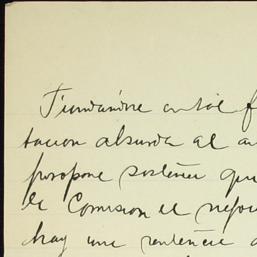 Fundandose en tal f
tacion absurda al a
propone sostener que
la Comision el nego
hay una sentencia